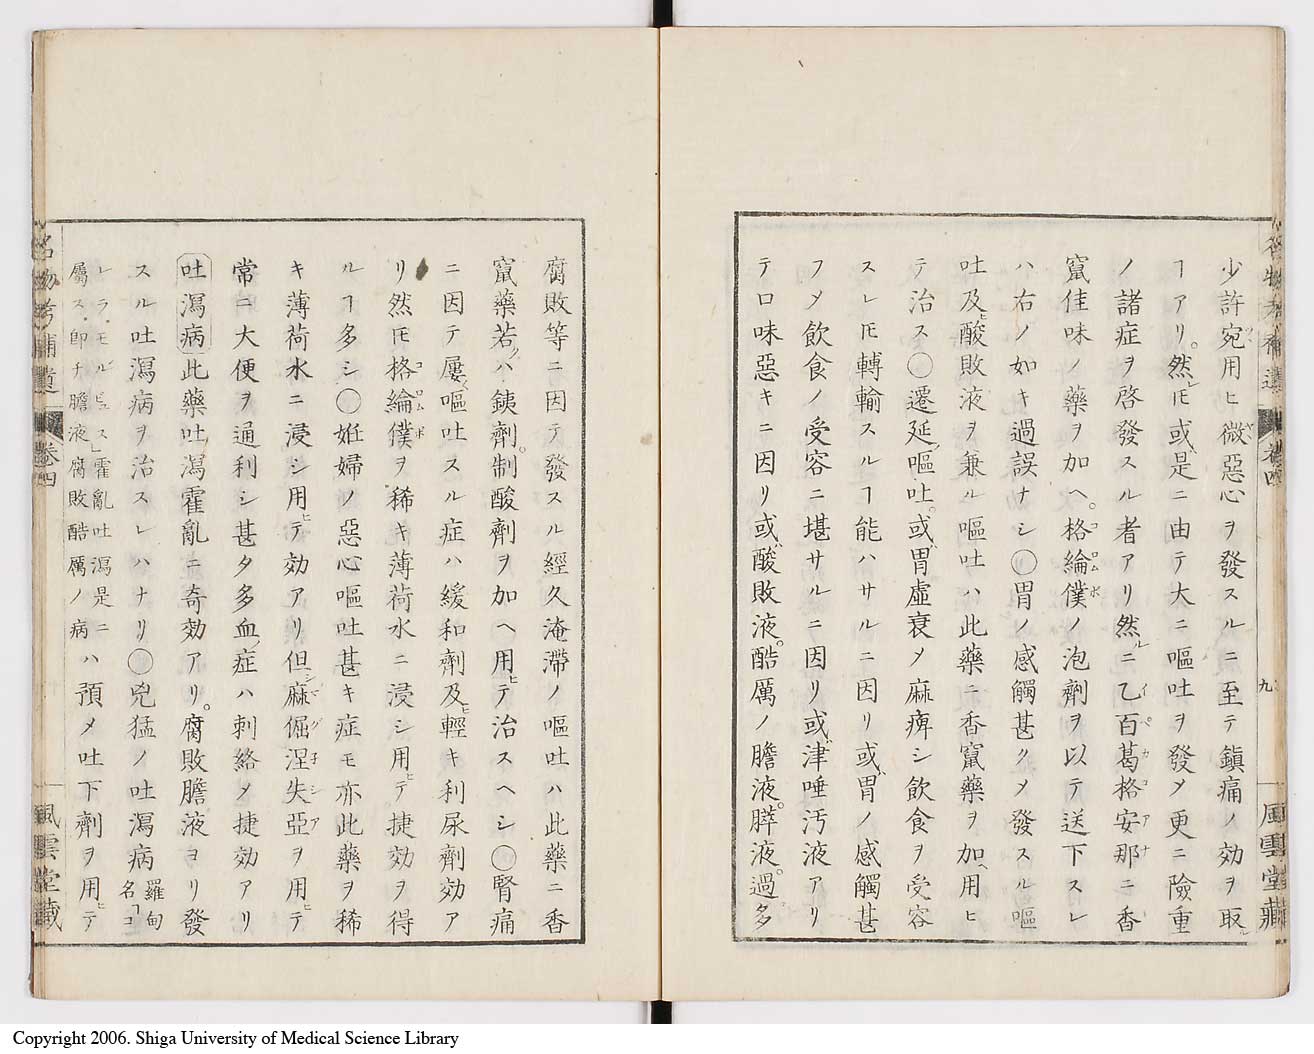 少許宛用ヒ微惡心ヲ發スルニ至テ鎭痛ノ効ヲ取ル
ヿアリ。然レ𪜈或ハ是ニ由テ大ニ嘔吐ヲ發メ更ニ險重
ノ諸症ヲ啓發スル者アリ然ルニ乙百葛格安那ニ香
竄佳味ノ藥ヲ加ヘ。格綸僕ノ泡劑ヲ以テ送下スレ
ハ右ノ如キ過誤ナシ○胃ノ感觸甚クメ發スル嘔
吐及ヒ酸敗液ヲ兼ル嘔吐ハ此藥ニ香竄藥ヲ加ヘ用ヒ
テ治ス○遷延ノ嘔吐。或ハ胃虛衰メ麻痺シ飲食ヲ受容
スレ𪜈轉輸スルヿ能ハサルニ因リ或ハ胃ノ感觸甚
フメ飲食ノ受容ニ堪サルニ因リ或ハ津唾汚液アリ
テ口味惡キニ因リ或ハ酸敗液。酷厲ノ膽液。膵液。過多
腐敗等ニ因テ發スル經久淹滯ノ嘔吐ハ此藥ニ香
竄藥若クハ銕劑。制酸劑ヲ加ヘ用ヒテ治スヘシ○腎痛
ニ因テ屢〻嘔吐スル症ハ緩和劑及ヒ輕キ利尿劑効ア
リ然𪜈格綸僕ヲ稀キ薄荷水ニ浸シ用ヒテ捷効ヲ得
ルヿ多シ○妊婦ノ惡心嘔吐甚キ症モ亦此藥ヲ稀
キ薄荷水ニ浸シ用ヒテ効アリ但シ麻倔涅失亞ヲ用ヒテ
常ニ大便ヲ通利シ甚タ多血ノ症ハ刺絡メ捷効アリ
吐瀉病 此藥吐瀉霍亂ニ奇効アリ。腐敗膽液ヨリ發
スル吐瀉病ヲ治スレハナリ○兇猛ノ吐瀉病 羅甸名コ
レラ・モルビュス」霍亂吐瀉是ニ
屬ス・卽ナ膽液腐敗酷厲ノ病ハ預メ吐下劑ヲ用ヒテ
名物考補遺
卷四
九
風雲堂藏
名物考補遺
卷四
風雲堂藏
Copyright 2006. Shiga University of Medical Science Library